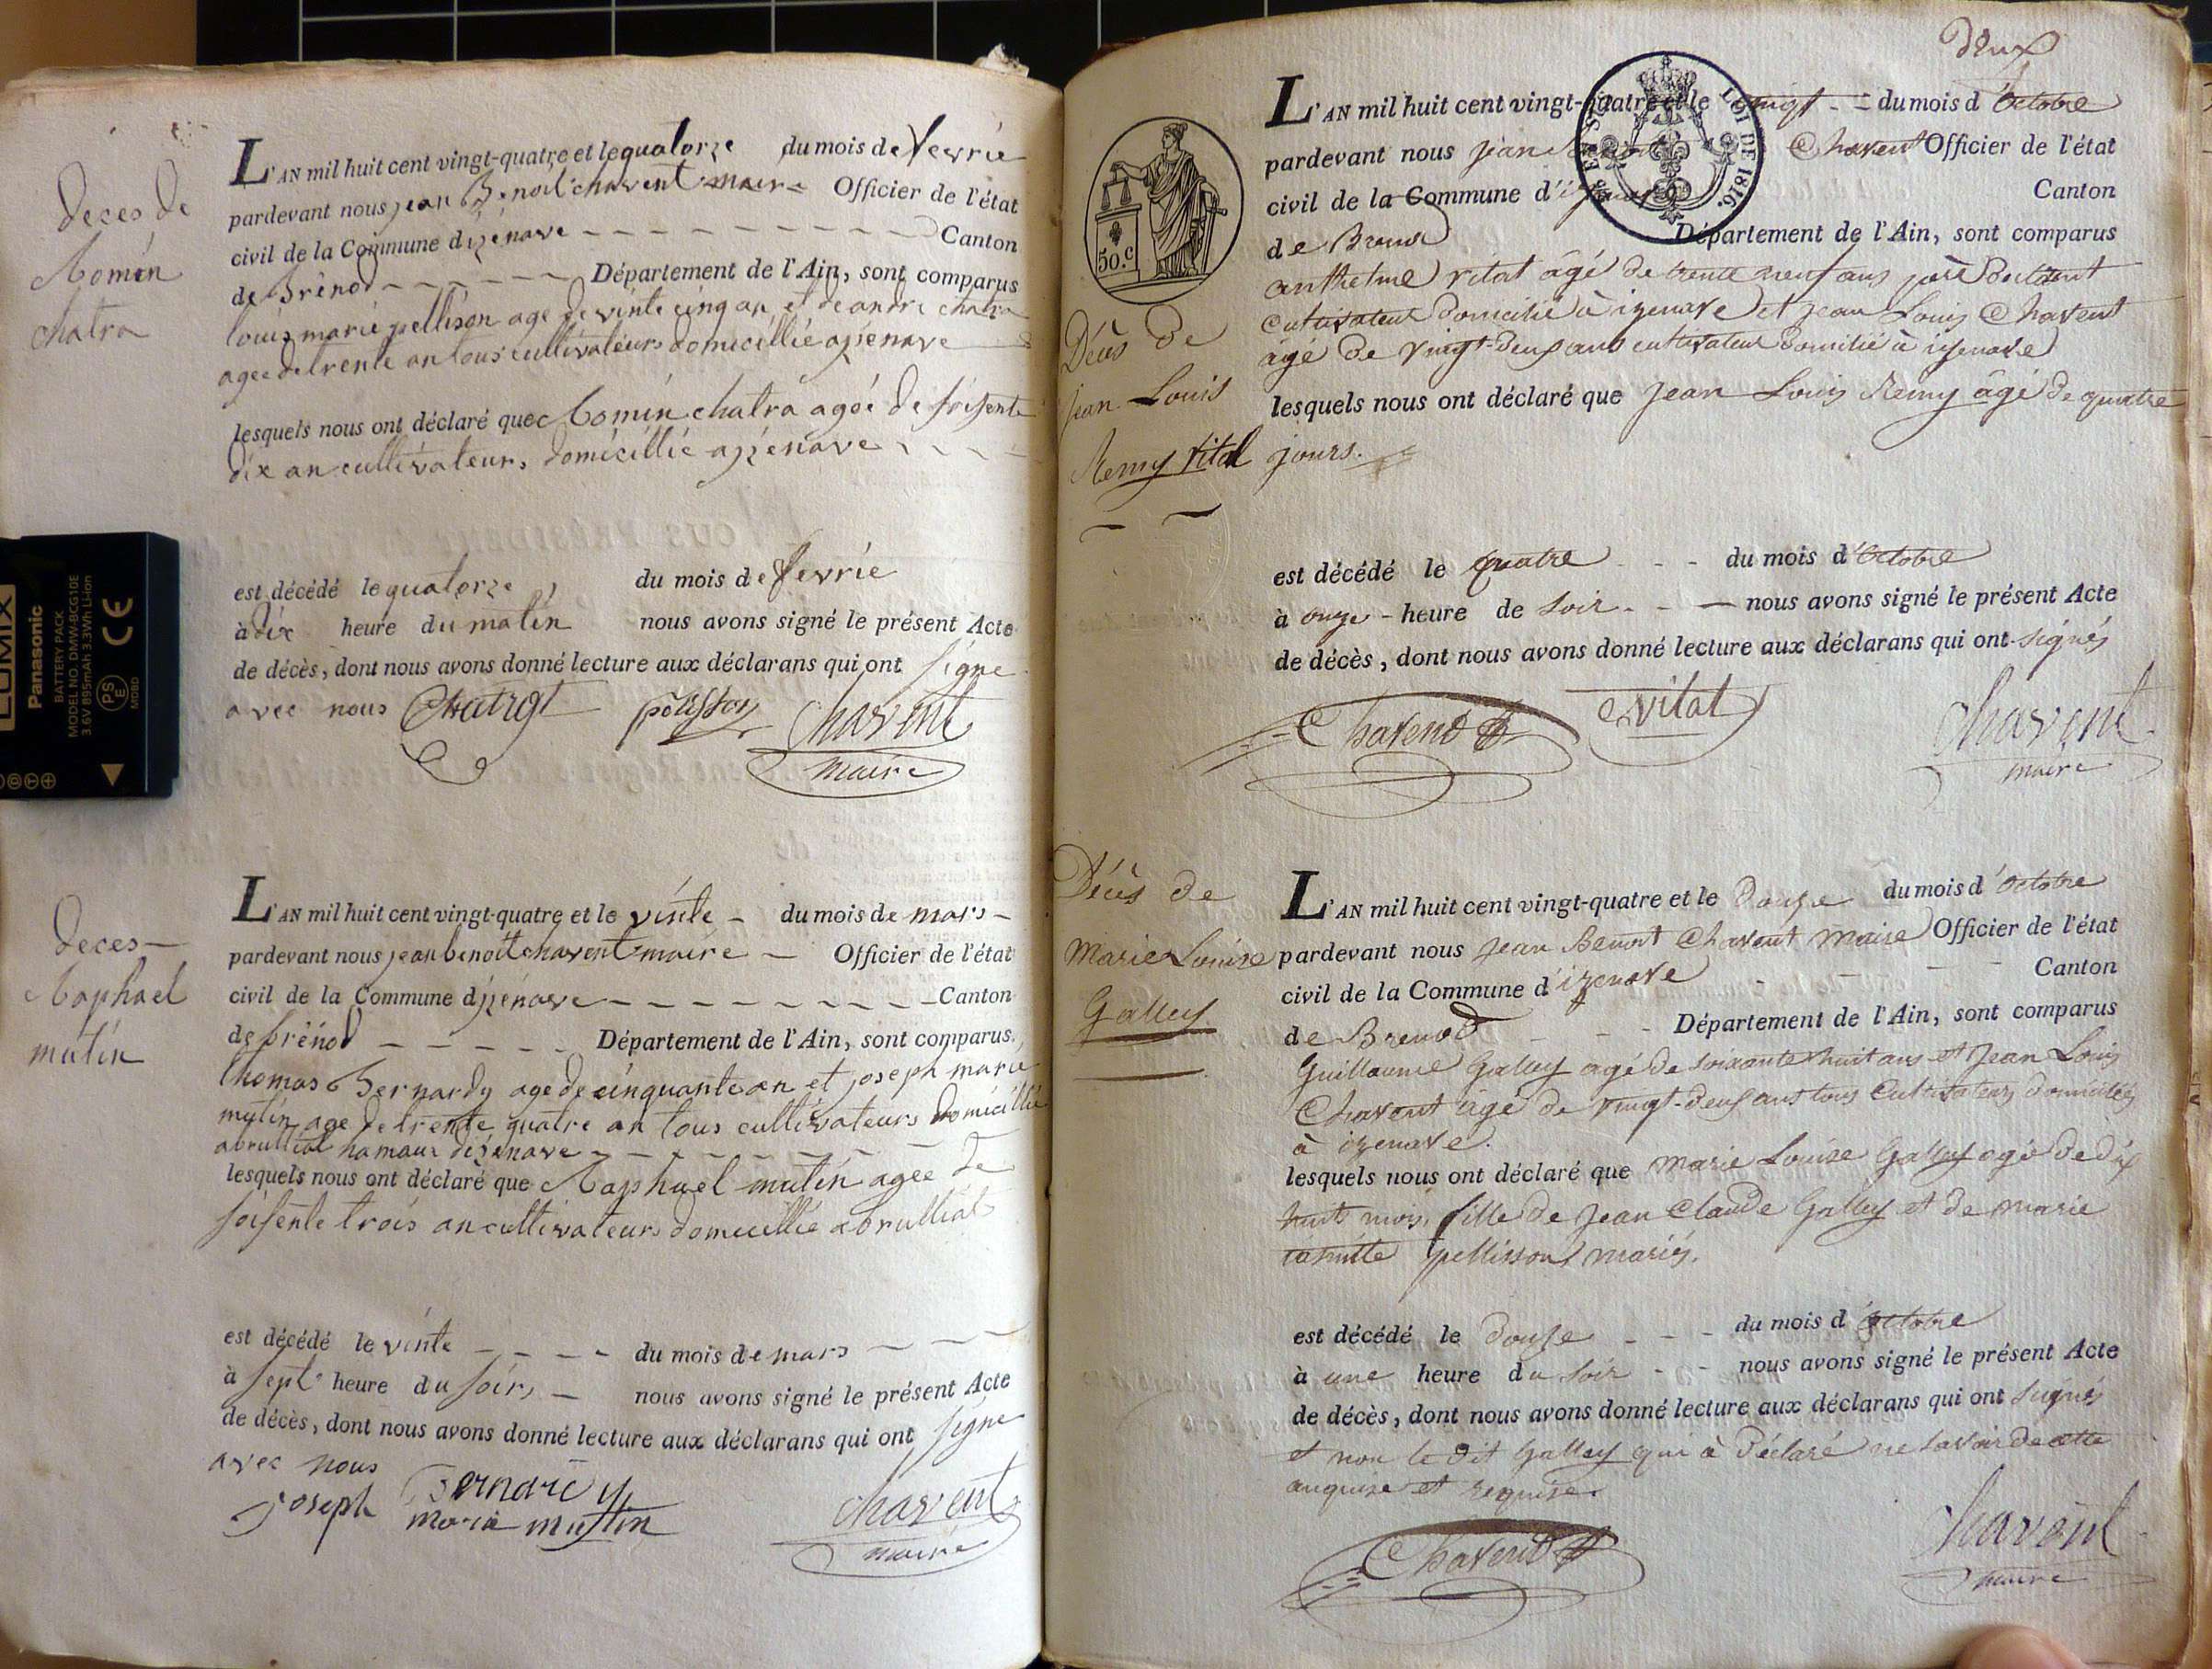 deces de
Romen
chatra
L'AN mil huit cent vingt-quatre et le quatorze du mois de fevrié
pardevant nous jean Benoit chavent maire Officier de l'état
civil de la Commune dizénave Canton
de brénod Département de l'Ain, sont comparus
louis marie pellison age de vinte cinq an et de andré chatra
agee de trente an tous cultivateurs domicillié a izenave
lesquels nous ont déclaré que Romén chatra agéé de soisente
dix an cultivateur, domicillié a izénave
est décédé le quatorze du mois de fevrié
à dix heure du matin nous avons signé le présent Acte
de décès, dont nous avons donné lecture aux déclarans qui ont signe
avec nous
pelisson chavent
maire
LUMIX
Panasonic
BATTERY PACK
MODEL NO. DMW-BCG10E
3.6V 895mAh 3.3Wh Li-ion
CE
PS
E
MDBD
deces
Raphael
mutin
L'AN mil huit cent vingt-quatre et le vinte du mois de mars
pardevant nous jean benoit chavent maire Officier de l'état
civil de la Commune dizénave Canton
de brénod Département de l'Ain, sont comparus
thomas Bernardy age de cinquante an et joseph marie
mutin age de trente quatre an tous cultivateurs domicillié
a brulliat hamaux dizénave
lesquels nous ont déclaré que Raphael mutin agee de
soisente trois an cultivateur domicillié a brulliat
est décédé le vinte du mois de mars
à sept heure du soir nous avons signé le présent Acte
de décès, dont nous avons donné lecture aux déclarans qui ont signe
avec nous
joseph marie mutin
chavent
maire
deux
50.c
LOI DE 1816.
L'AN mil huit cent vingt-quatre et le vingt du mois d'octobre
pardevant nous jean Chavent Officier de l'état
civil de la Commune d'izenave Canton
de Brenod Département de l'Ain, sont comparus
anthelme vital âgé de trente neuf ans père
cultivateur domicilié à izenave et jean Louis Chavent
âgé de vingt-deux ans cultivateur domilié à izenave
Décès de
jean Louis
Remy vital
lesquels nous ont déclaré que jean Louis Remy âgé de quatre
jours.
est décédé le quatre du mois d'octobre
à onze heure de soir nous avons signé le présent Acte
de décès, dont nous avons donné lecture aux déclarans qui ont signés
Chavent vital chavent
maire
Décès de
Marie Louise
Galley
L'AN mil huit cent vingt-quatre et le douze du mois d'octobre
pardevant nous jean Benoit Chavent Maire Officier de l'état
civil de la Commune d'izenave Canton
de Brenod Département de l'Ain, sont comparus
Guillaume Galley agé de soixante huit ans et jean Louis
Chavent âgé de vingt-deux ans tous cultivateurs domiciliés
à izenave.
lesquels nous ont déclaré que marie Louise Galley agé de dix
huit mois, fille de jean Claude Galley et de marie
pellisson mariés.
est décédé le douze du mois d'octobre
à une heure du soir nous avons signé le présent Acte
de décès, dont nous avons donné lecture aux déclarans qui ont signés
et non le dit Galley qui à déclaré ne savoir de cette
enquise et requise.
Chavent chavent
maire